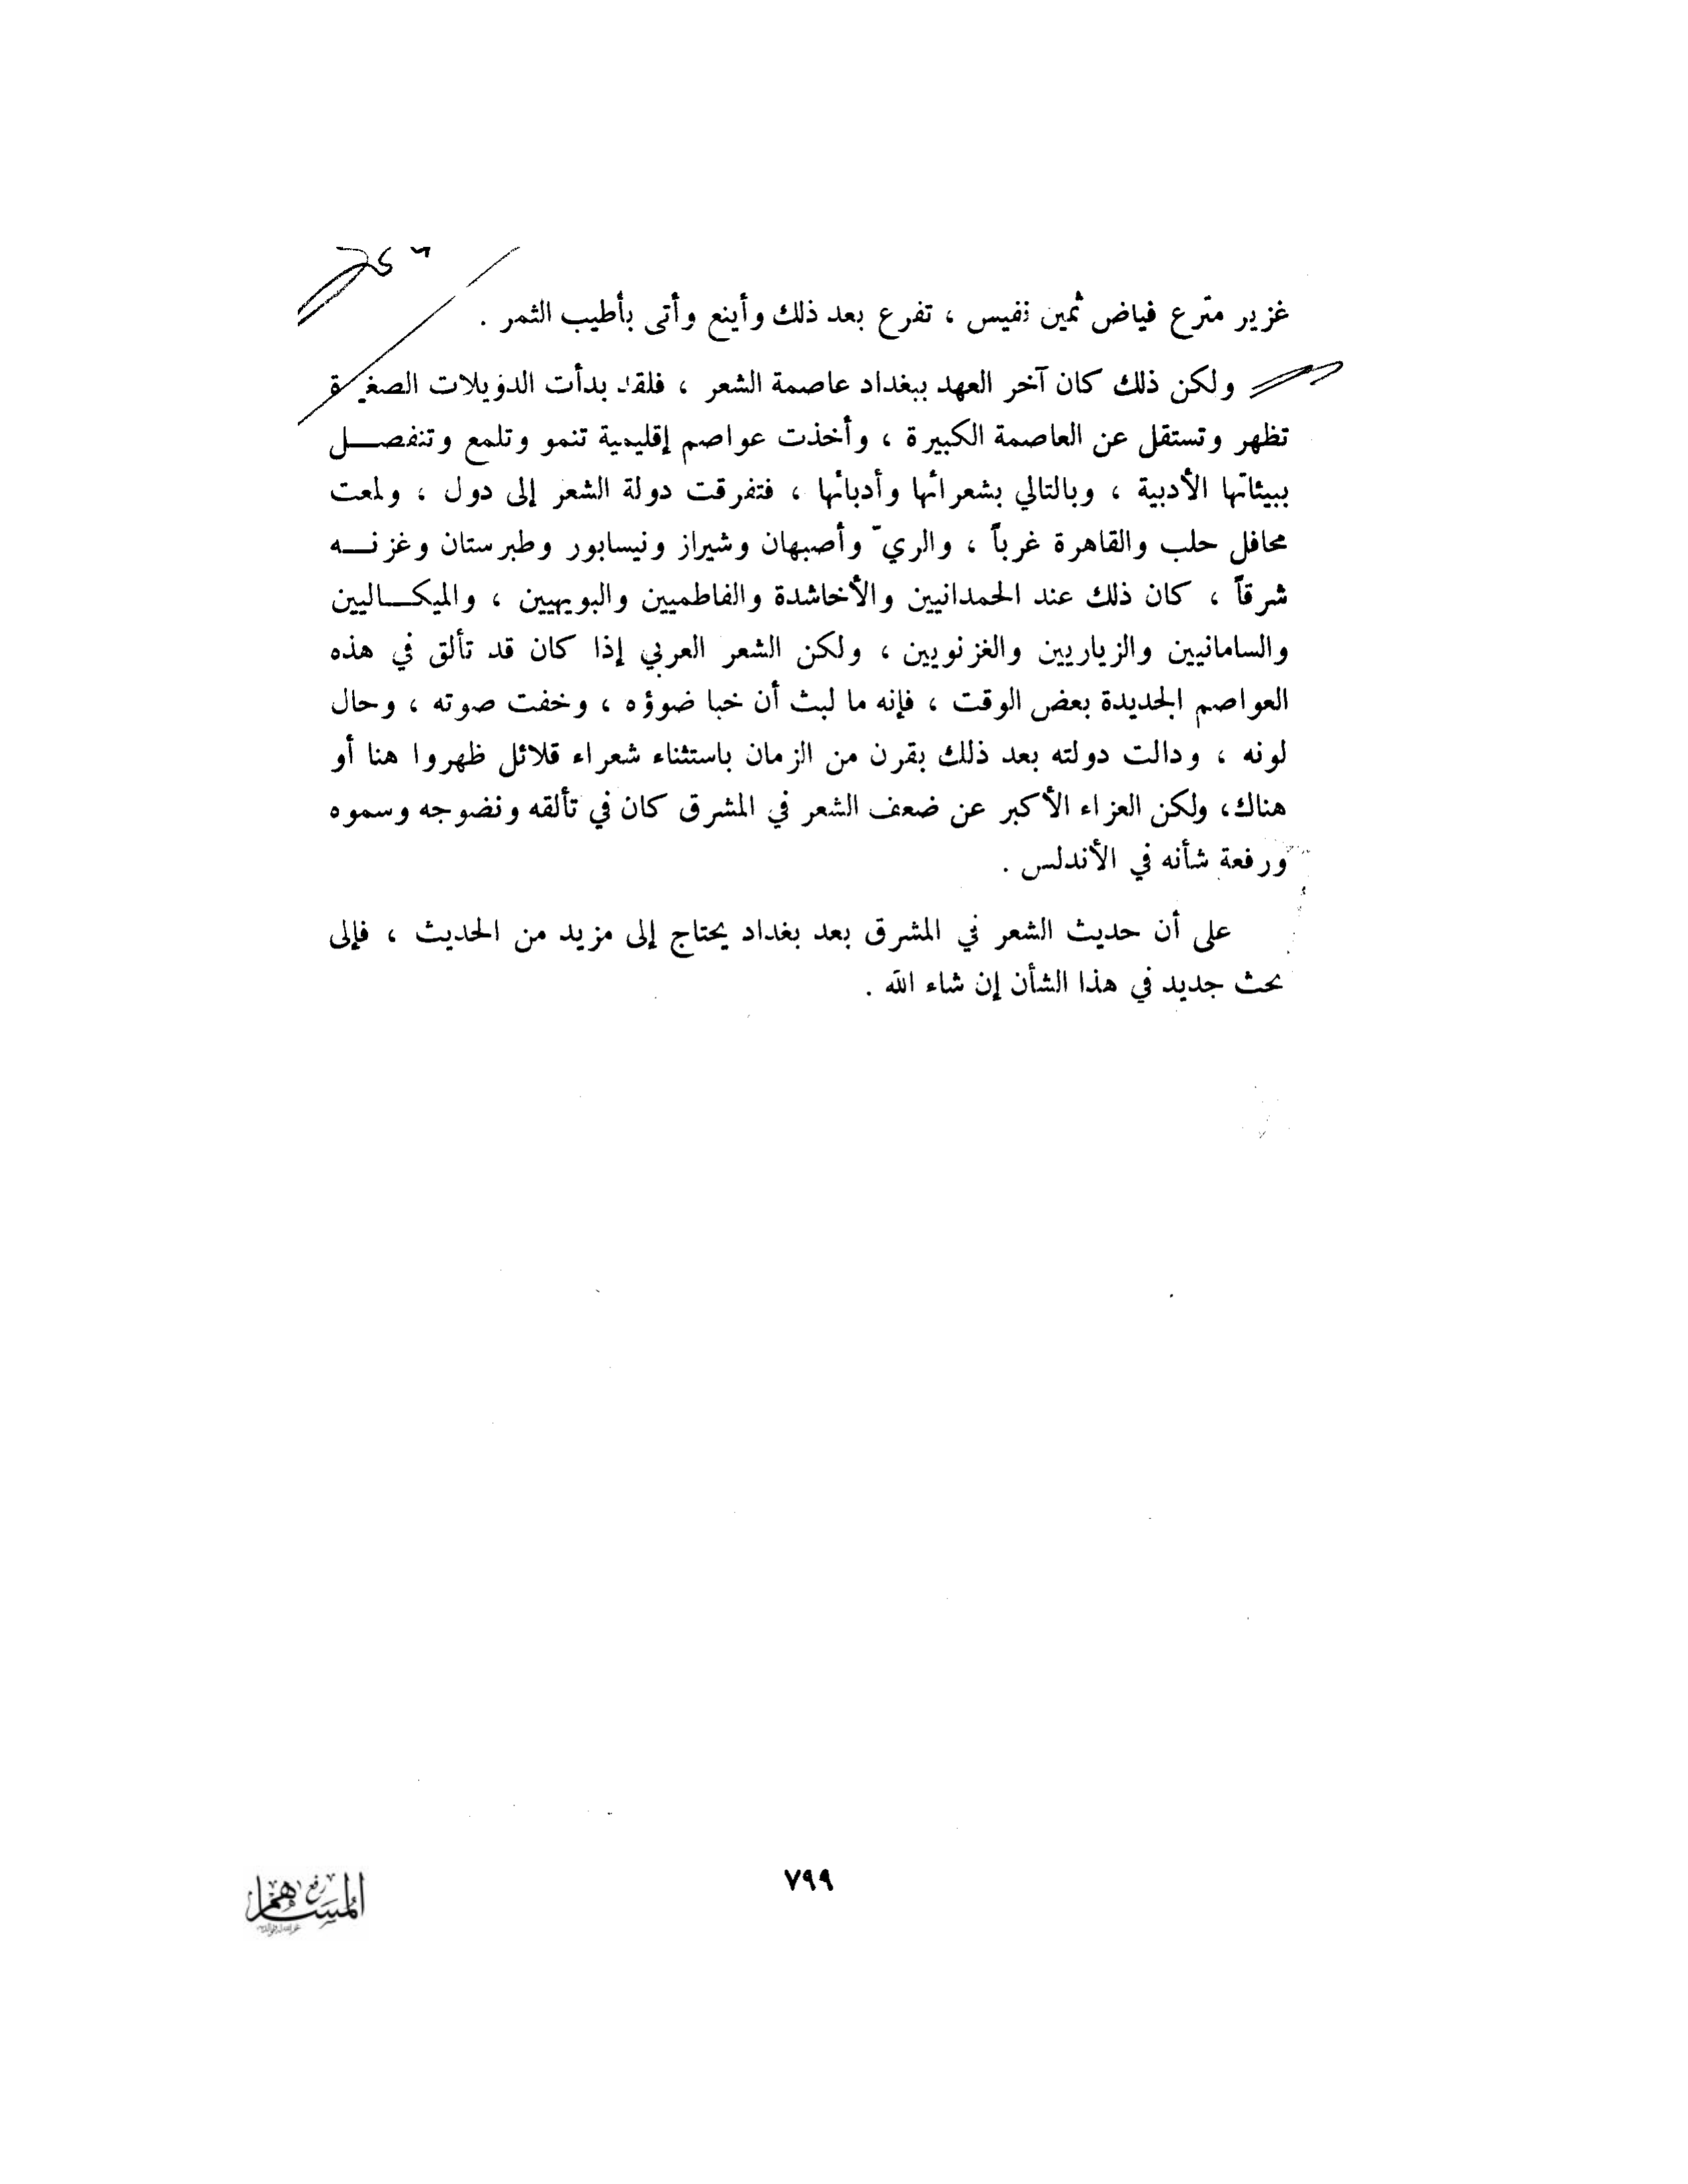 غزير مترع فياض ثمين نفيس ، تفرع بعد ذلك وأينع وأتى بأطيب الثمر .
ولكن ذلك كان آخر العهد ببغداد عاصمة الشعر ، فلقد بدأت الدويلات الصغيرة
تظهر وتستقل عن العاصمة الكبيرة ، وأخذت عواصم إقليمية تنمو وتلمع وتنفصل
ببيئاتها الأدبية ، وبالتالي بشعرائها وأدبائها ، فتفرقت دولة الشعر إلى دول ، ولمعت
محافل حلب والقاهرة غرباً ، والريّ وأصبهان وشيراز ونيسابور وطبرستان وغزنه
شرقاً ، كان ذلك عند الحمدانيين والأخاشدة والفاطميين والبويهيين ، والميكاليين
والسامانيين والزياريين والغزنويين ، ولكن الشعر العربي إذا كان قد تألق في هذه
العواصم الجديدة بعض الوقت ، فإنه ما لبث أن خبا ضوؤه ، وخفت صوته ، وحال
لونه ، ودالت دولته بعد ذلك بقرن من الزمان باستثناء شعراء قلائل ظهروا هنا أو
هناك، ولكن العزاء الأكبر عن ضعف الشعر في المشرق كان في تألقه ونضوجه وسموه
ورفعة شأنه في الأندلس .
على أن حديث الشعر في المشرق بعد بغداد يحتاج إلى مزيد من الحديث ، فإلى
بحث جديد في هذا الشأن إن شاء الله .
٧٩٩